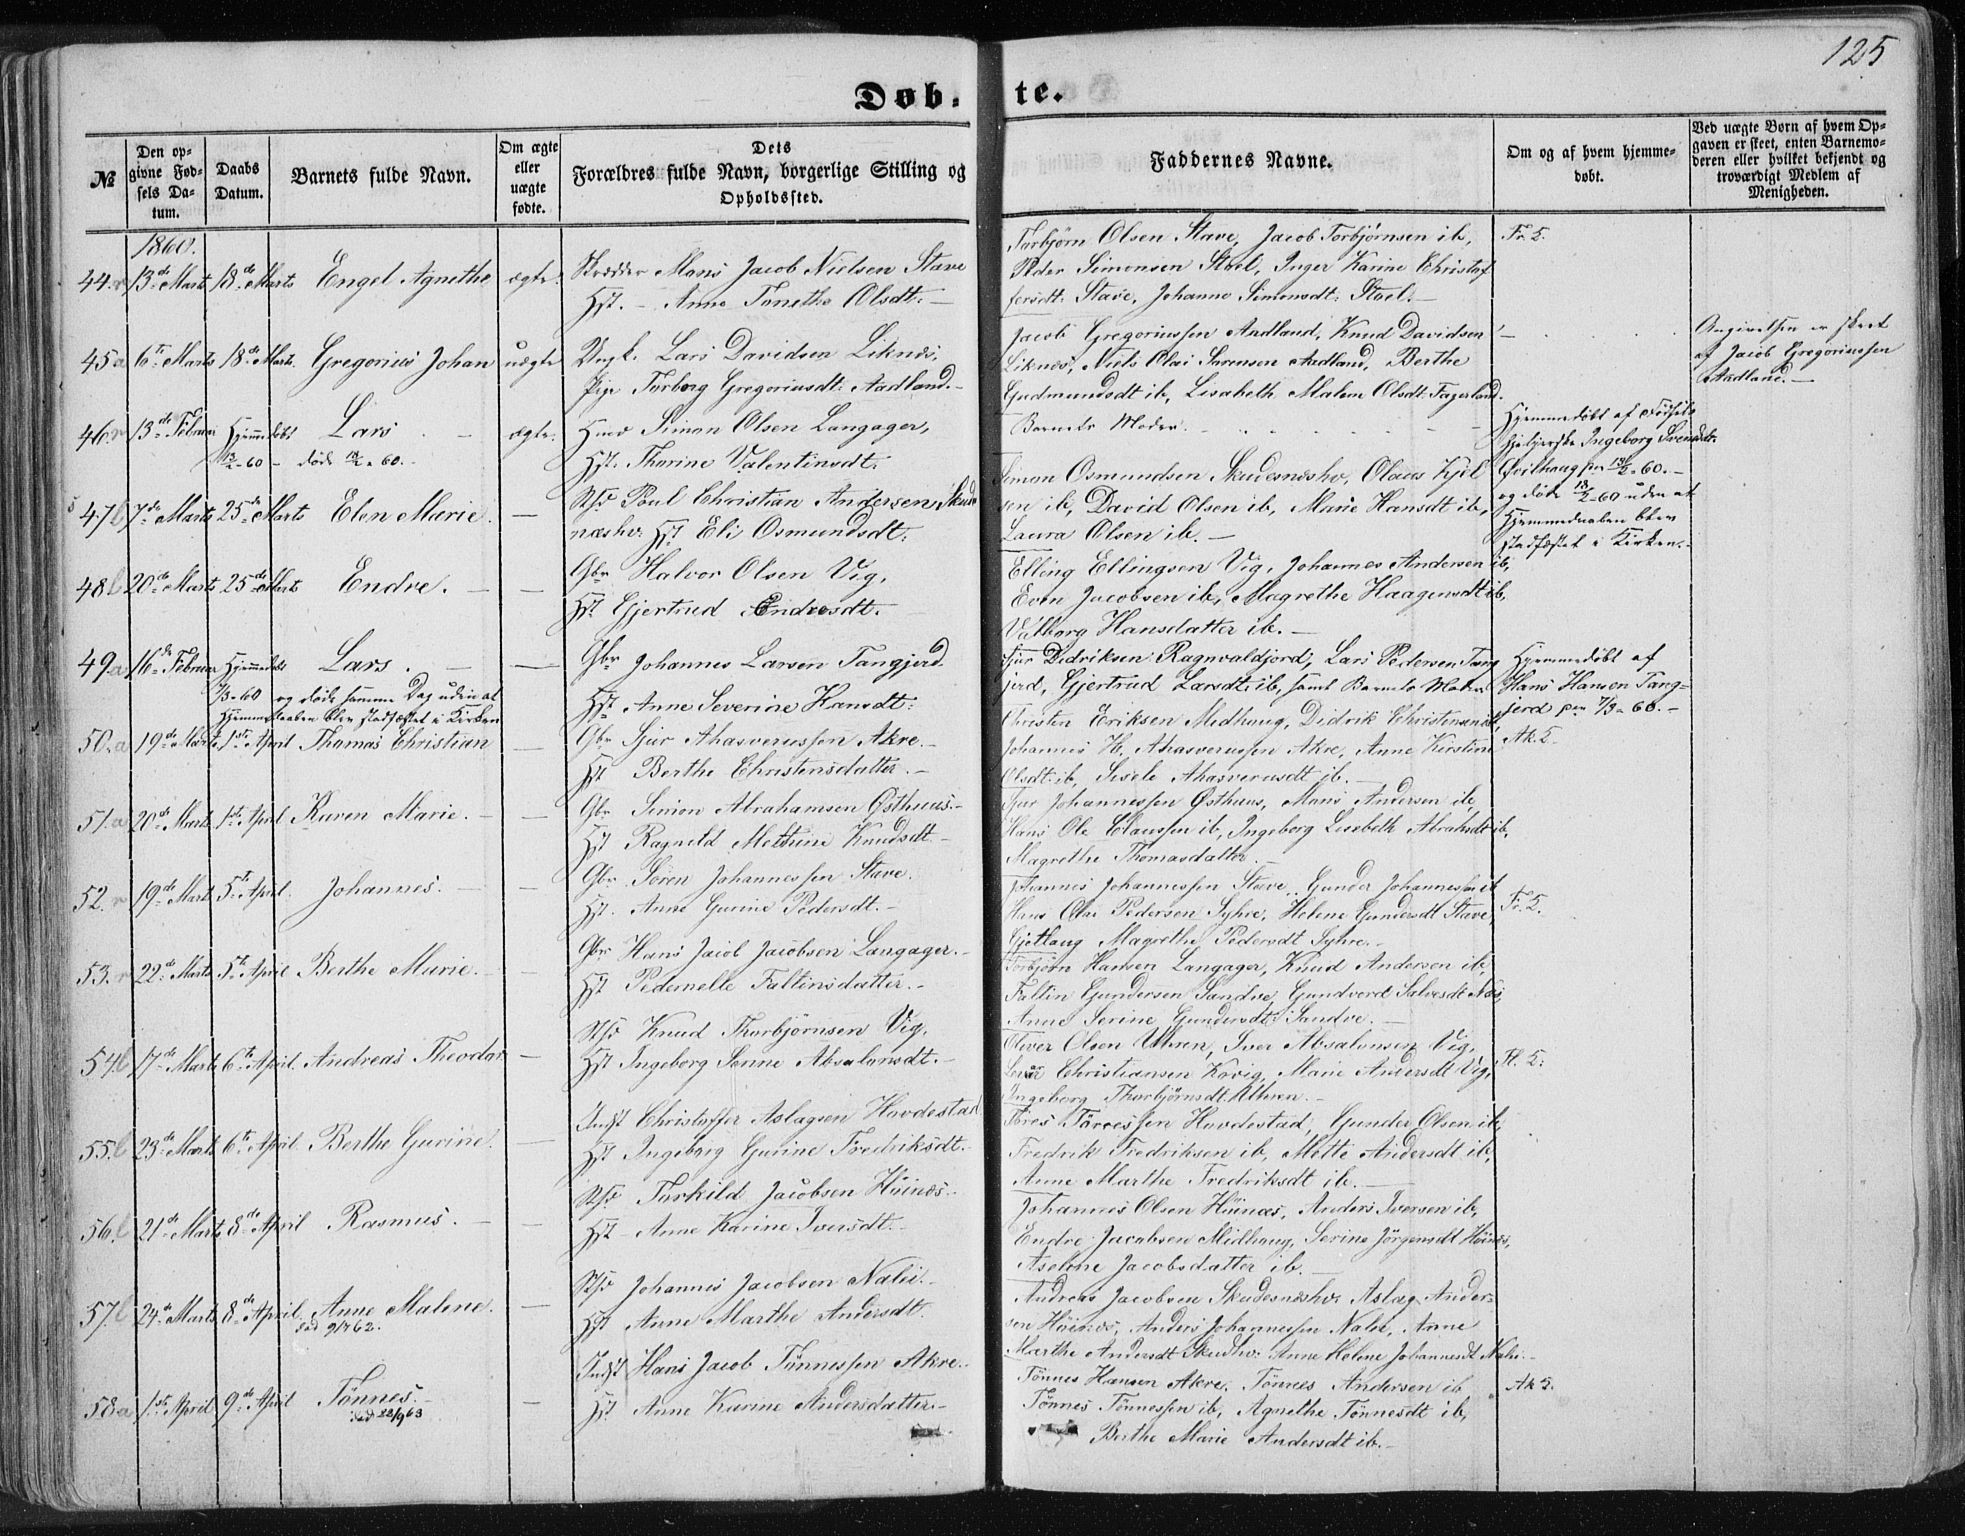 125
Døb- te.
№
Den op-
givne Fød-
sels Da-
tum.
Daabs
Datum.
Barnets fulde Navn.
Om ægte
eller
uægte
fødte.
Dets
Forældres fulde Navn, borgerlige Stilling og
Opholdssted.
Faddernes Navne.
Om og af hvem hjemme-
døbt.
Ved uægte Børn af hvem Op-
gaven er skeet, enten Barnemo-
deren eller hvilket bekjendt og
troværdigt Medlem af
Menigheden.
1860.
44.r 13de Marts 18de Marts Engel Agnethe ægte.
Skrædder Mons Jacob Nielsen Stave
Hst. - Anne Tonette Olsdt. -
Torbjørn Olsen Stave, Jacob Torbjørnsen ib,
Peder Simonsen Stoel, Inger Karine Christof
fersdt. Stave, Johanne Simonsdt. Stoel. -
Fr. 5.
45a 6te Marts 18de Marts. Gregorius Johan uægte
Ungk. Lars Davidsen Liknes,
Pige Torborg Gregoriusdt. Aadland. -
Jacob Gregoriussen Aadland, Knud Davidsen
Liknes, Niels Olai Sørensen Aadland, Berthe
Gudmundsdt ib, Lisabeth Malene Olsdt Fagerland.
Angivelsen er skeet
af Jacob Gregoriussen
Aadland. -
46.r 13de Februar Hjemmedøbt Lars. - ægte.
13/2-60 - døde 18/2-60. -
Hmd Simon Olsen Langager,
Hst. Thorine Valentinsdt.
Barnets Moder. -
Hjemmedøbt af Fødsels
hjelperske Ingeborg Svendsdt.
Øvilhaug pr 13/2-60. -
og døde 18/2-60 uden at
Hjemmedaaben blev
stadfæstet i Kirken. -
47b 7de Marts 25de Marts Elen Marie. -
Stsd Poul Christian Andersen, Skud
neshv. Hst Eli Osmundsdt.
Simon Osmundsen Skudesneshv, Olaus Kjel
sen ib, David Olsen ib, Marie Hansdt ib,
Laura Olsen ib. -
48b 20de Marts 25de Marts Endre. - -
Gbr Halvor Olsen Vig,
Hst. Gjertrud Endresdt.
Elling Ellingsen Vig, Johannes Andersen ib,
Even Jacobsen ib, Magrethe Haagensdt ib,
Valborg Hansdatter ib. -
49a 16de Februar Hjemmedøbt Lars. - -
7/3-60 og døde samme Dag uden at
Hjemmedaaben blev stadfæstet i Kirken
Gbr Johannes Larsen Tangjerd
Hst Anne Severine Hansdt:
Sjur Didriksen Ragnvaldjord, Lars Pedersen Tang
jerd, Gjertrud Larsdt. ib, samt Barnets Moder
Hjemmedøbt af
Hans Hansen Tang=
jerd pr 7/3-60. -
50.a 19de Marts 1ste April Thomas Christian -
Gbr Sjur Ahasverussen Akre. -
Hst Berthe Christensdatter. -
Christen Eriksen Medhaug, Didrik Christensen ib,
Johannes H. Ahasverussen Akre, Anne Kirstine
Olsdt. ib, Sissele Ahasverusdt ib. -
Ak. 5.
51.a 20de Marts 1ste April Karen Marie. - -
Gbr Simon Abrahamsen Østhuus. -
Hst Ragnild Methine Knudsdt. -
Sjur Johannessen Østhuus, Mons Andersen ib,
Hans Ole Claussen ib, Ingeborg Lisebeth Abrahsdt ib,
Magrethe Thomasdatter. -
52.r 19de Marts 5te April. Johannes. - -
Gbr Søren Johannessen Stave.
Hst. Anne Gurine Pedersdt. -
Johannes Johannessen Stave, Gunder Johannessen ib
Hans Olai Pedersen Syhre, Helene Gundersdt Stave,
Gjetlaug Magrethe Pedersdt Syhre. -
Fr. 5.
53.r 22de Marts 5te April Berthe Marie. - -
Gbr Hans Jacob Jacobsen Langager. -
Hst Pedernelle Faltinsdatter. -
Torbjørn Hansen Langager, Knud Andersen ib,
Faltin Gundersen Sandve, Gundvord Salvesdt Næs,
Anne Serine Gundersdt: Sandve. -
54.b 17de Marts 6te April. Andreas Theodor -
Stsd Knud Thorbjørnsen Vig,
Hst Ingeborg Sonne Absalonsdt. -
Oliver Olsen Uthren, Iver Absalonsen Vig,
Christiansen Kovig, Marie Andersdt Vig,
Ingeborg Thorbjørnsdt. Uthren. -
Fl. 5:
55.b 23de Marts 6te April. Berthe Gurine. -
Indst Christoffer Aslagsen Hovdestad
Hst Ingeborg Gurine Fredriksdt. -
Tores Toressen Hovdestad, Gunder Olsen ib,
Fredrik Fredriksen ib, Mette Andersdt ib,
Anne Marthe Fredriksdt ib. -
56.b 21de Marts 8de April Rasmus. - -
Stsd Torkild Jacobsen Høines. -
Hst - Anne Karine Iversdt. -
Johannes Olsen Høines, Anders Iversen ib,
Endre Jacobsen Midhaug, Serine Jørgensdt Høines,
Aselone Jacobsdatter ib. -
57.b 24de Marts 8de April. Anne Malene. -
død 9/7 62.
Stsd Johannes Jacobsen Nalei. -
Hst Anne Marthe Andersdt.
Andreas Jacobsen Skudesneshv. Aslag Ander-
sen Høines, Anders Johannessen Nalei, Anne
Marthe Andersdt Skudhv. Anne Helene Johannesdt Nalei. -
58.a 1ste April 9de April Tønnes. - -
død 22/9 63
Indst Hans Jacob Tønnessen Akre. -
Hst Anne Karine Andersdatter. -
Tønnes Hansen Akre, Tønnes Andersen ib
Tønnes Tønnessen ib, Agnethe Tønnesdt ib,
Berthe Marie Andersdt ib. -
Ak 5.